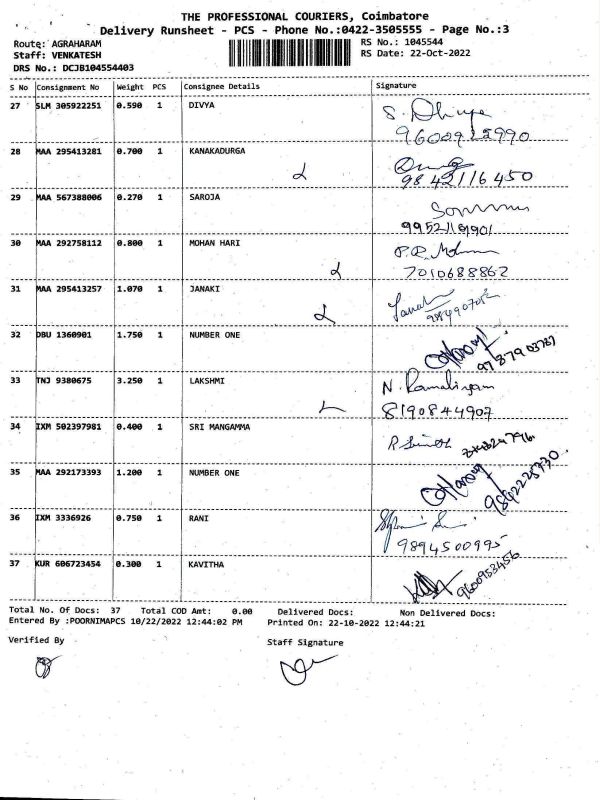 THE PROFESSIONAL COURIERS, Coimbatore
Delivery Runsheet - PCS - Phone No.:0422-3505555 - Page No.:3
Route: AGRAHARAM RS No.: 1045544
Staff: VENKATESH RS Date: 22-Oct-2022
DRS No.: DCJB104554403
S No Consignment No Weight PCS Consignee Details Signature
27 SLM 305922251 0.590 1 DIVYA S. Dhivya
28 MAA 295413281 0.700 1 KANAKADURGA
9842116450
29 MAA 567388006 0.270 1 SAROJA
30 MAA 292758112 0.800 1 MOHAN HARI
7010688862
31 MAA 295413257 1.070 1 JANAKI
32 DBU 1360901 1.750 1 NUMBER ONE
33 TNJ 9380675 3.250 1 LAKSHMI N. Ramalingam
8190844907
34 IXM 502397981 0.400 1 SRI MANGAMMA
35 MAA 292173393 1.200 1 NUMBER ONE
9842225730
36 IXM 3336926 0.750 1 RANI
9894500995
37 KUR 606723454 0.300 1 KAVITHA
9600953456
Total No. Of Docs: 37 Total COD Amt: 0.00 Delivered Docs: Non Delivered Docs:
Entered By :POORNIMAPCS 10/22/2022 12:44:02 PM Printed On: 22-10-2022 12:44:21
Verified By Staff Signature